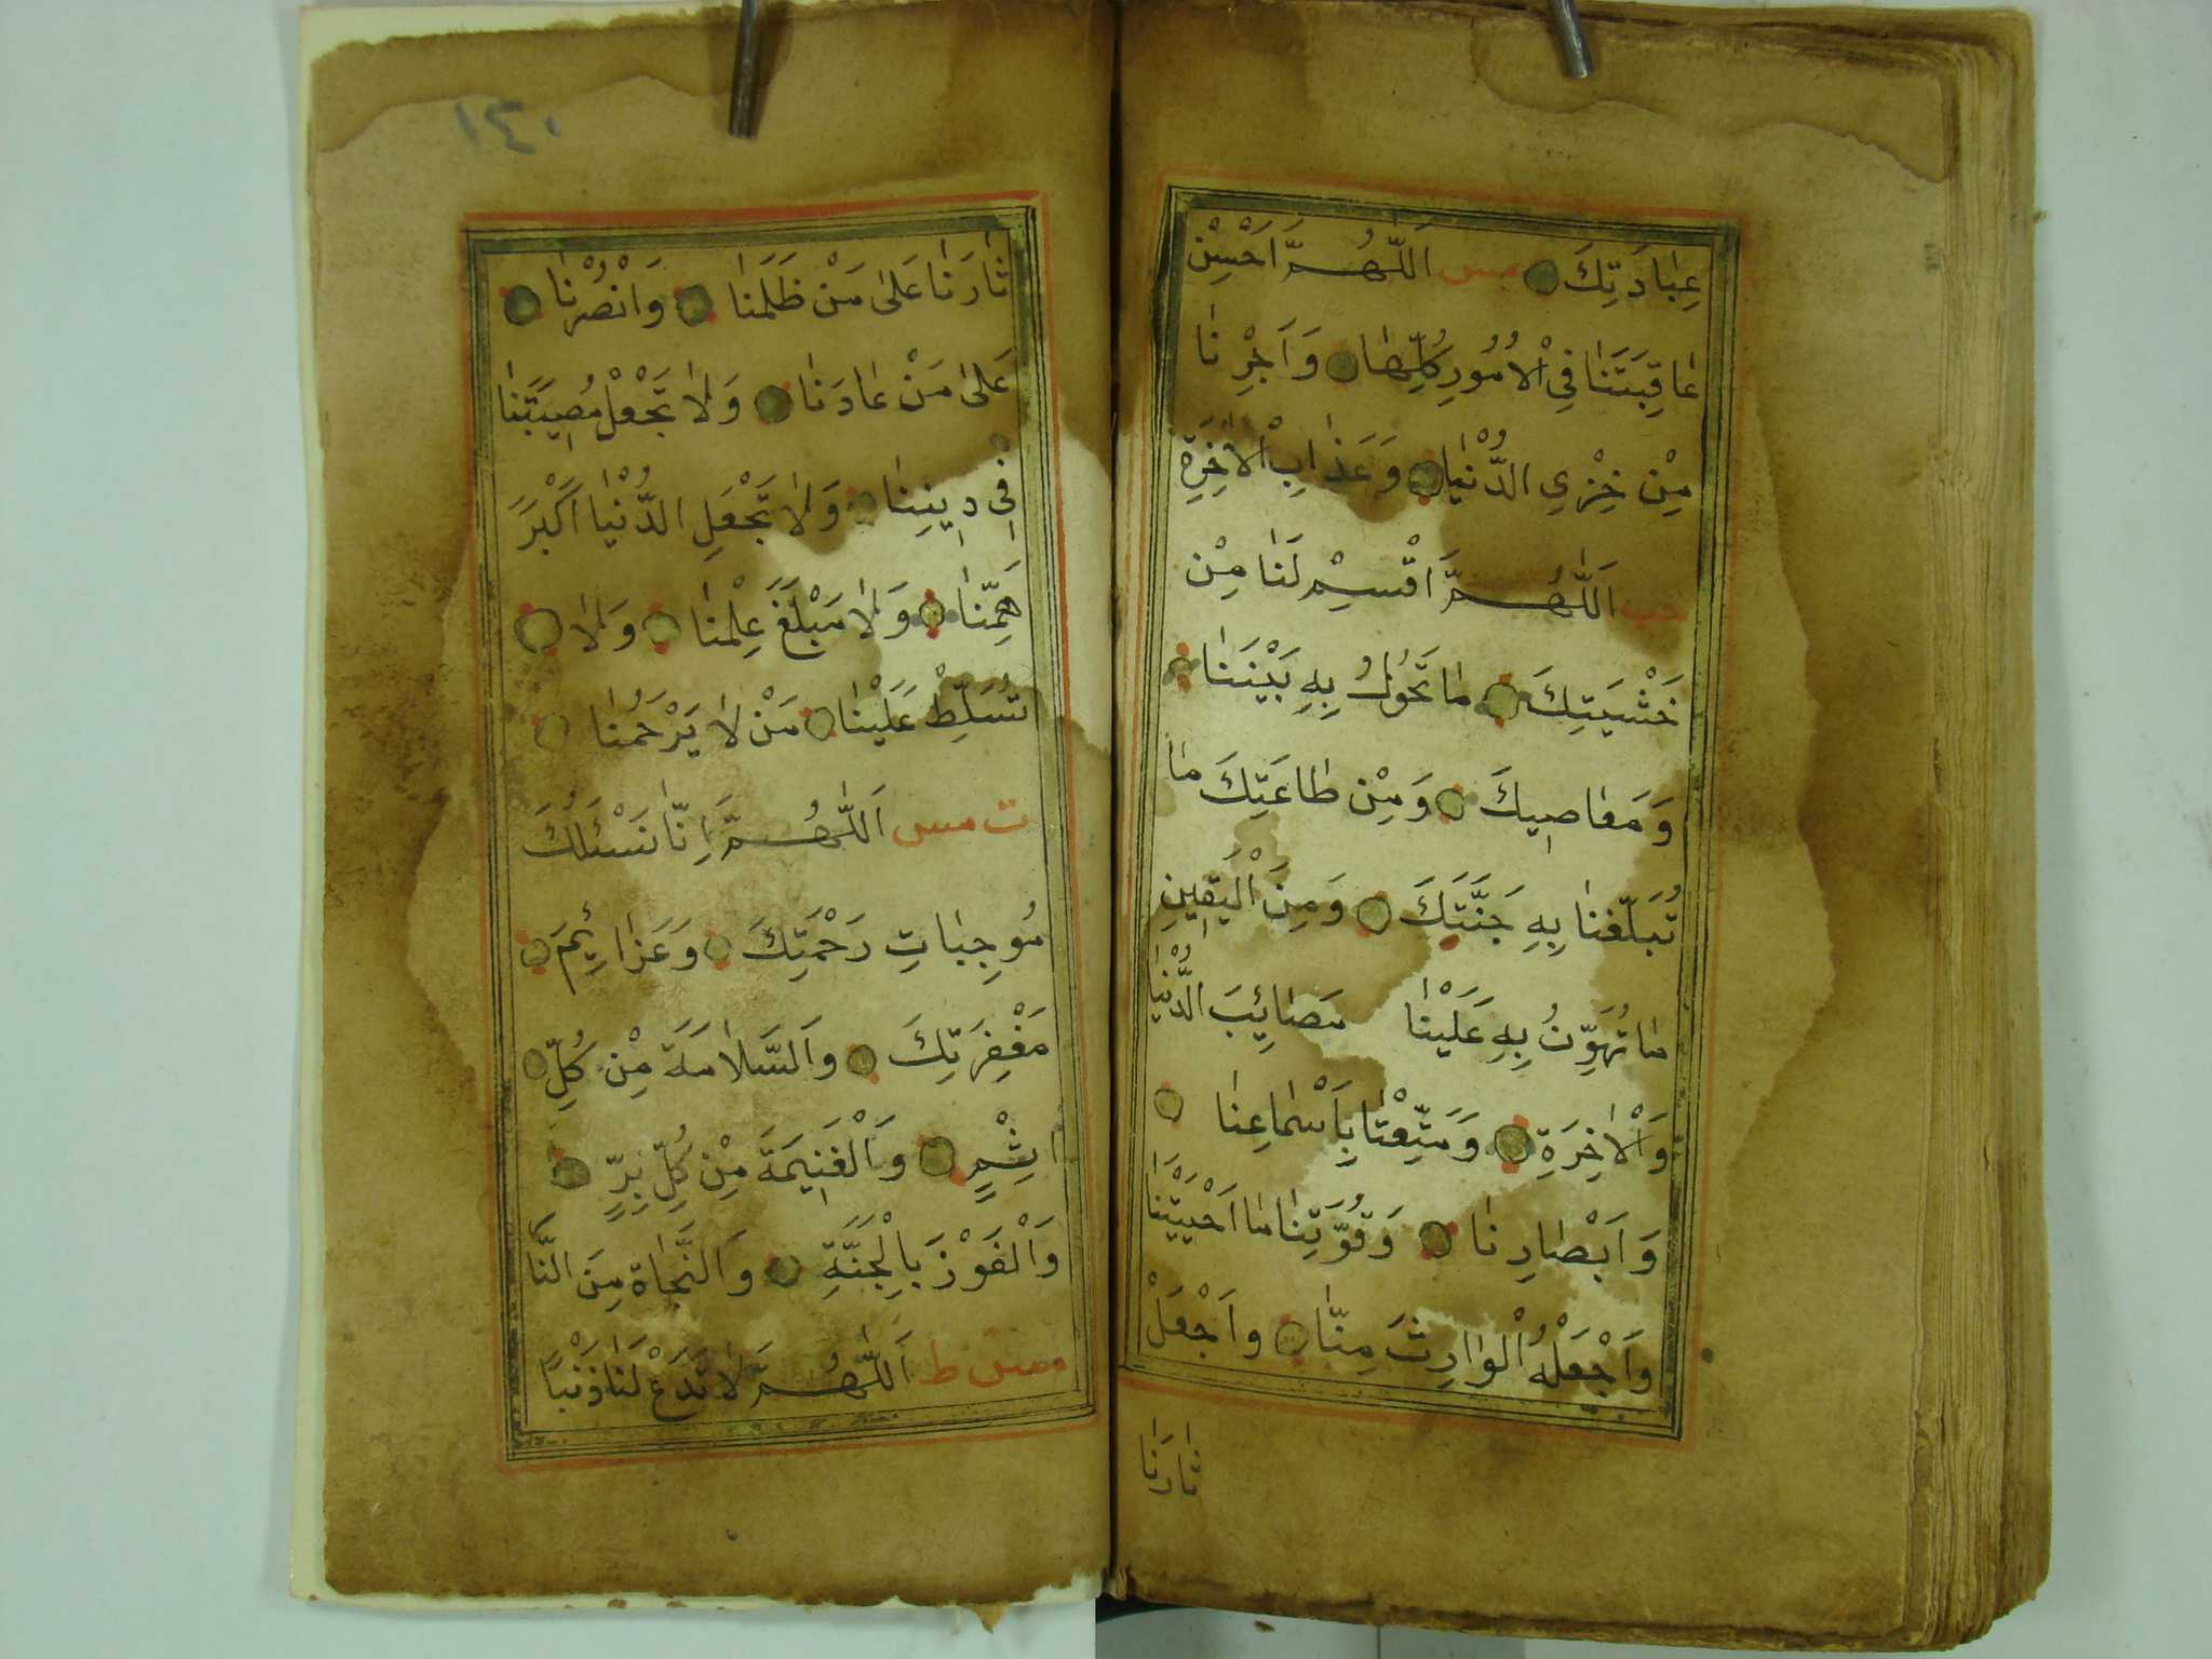 عِبَادَتِكَ مس اَللّٰهُمَّ اَحْسِنْ
عَاقِبَتَنَا فِى الْاُمُورِ كُلِّهَا وَاَجِرْنَا
مِنْ خِزْىِ الدُّنْيَا وَعَذَابِ الْاٰخِرَةِ
حب اَللّٰهُمَّ اقْسِمْ لَنَا مِنْ
خَشْيَتِكَ مَا تَحُولُ بِهِ بَيْنَنَا
وَمَعَاصِيكَ وَمِنْ طَاعَتِكَ مَا
تُبَلِّغُنَا بِهِ جَنَّتَكَ وَمِنَ الْيَقِينِ
مَا تُهَوِّنُ بِهِ عَلَيْنَا مَصَائِبَ الدُّنْيَا
وَالْاٰخِرَةِ وَمَتِّعْنَا بِاَسْمَاعِنَا
وَاَبْصَارِنَا وَقُوَّتِنَا مَا اَحْيَيْتَنَا
وَاَجْعَلْهُ الْوَارِثَ مِنَّا وَاَجْعَلْ
ثَارَنَا
١٤٠
ثَارَنَا عَلٰى مَنْ ظَلَمَنَا وَانْصُرْنَا
عَلٰى مَنْ عَادَنَا وَلَا تَجْعَلْ مُصِيبَتَنَا
فِى دِينِنَا وَلَا تَجْعَلِ الدُّنْيَا اَكْبَرَ
هَمِّنَا وَلَا مَبْلَغَ عِلْمِنَا وَلَا
تُسَلِّطْ عَلَيْنَا مَنْ لَا يَرْحَمُنَا
ت مس اَللّٰهُمَّ اِنَّا نَسْئَلُكَ
مُوجِبَاتِ رَحْمَتِكَ وَعَزَائِمَ
مَغْفِرَتِكَ وَالسَّلَامَةَ مِنْ كُلِّ
اِثْمٍ وَالْغَنِيمَةَ مِنْ كُلِّ بِرٍّ
وَالْفَوْزَ بِالْجَنَّةِ وَالنَّجَاةَ مِنَ النَّا
مس ط اَللّٰهُمَّ لَا تَدَعْ لَنَا ذَنْبًا